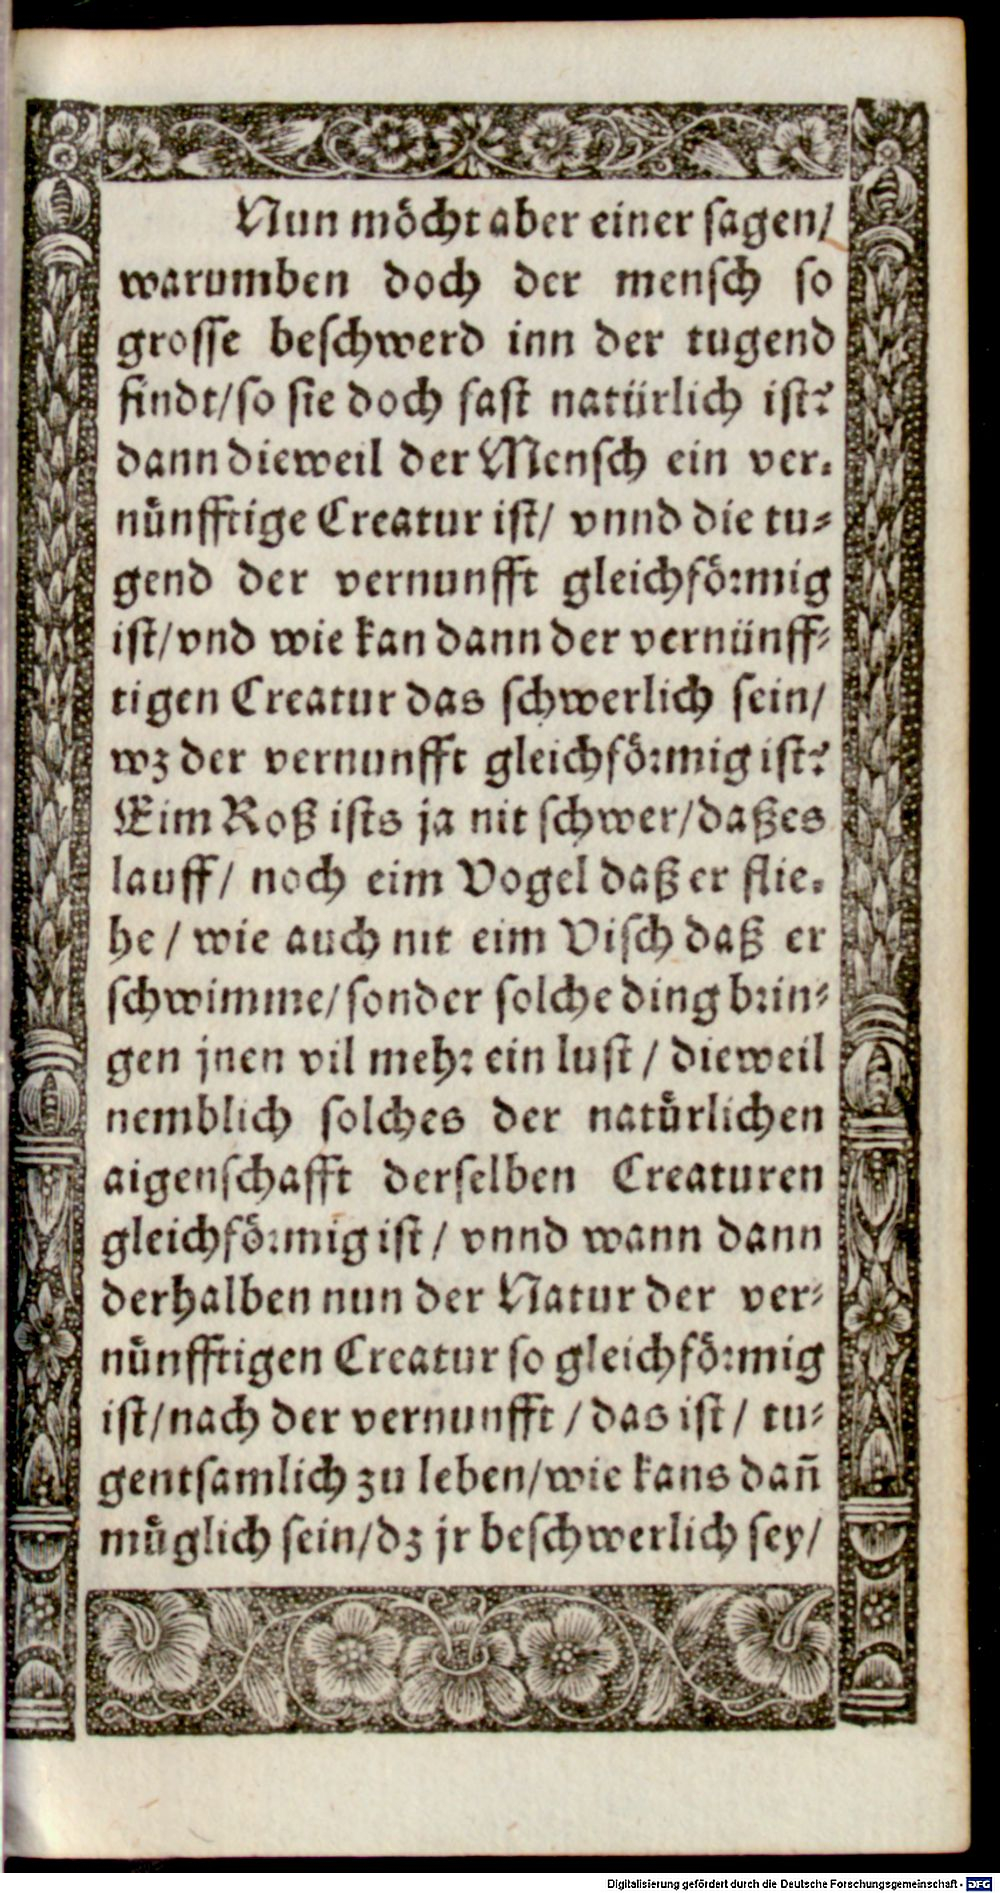 Nun möcht aber einer sagen/
warumben doch der mensch so
grosse beschwerd inn der tugend
findt/so sie doch fast natürlich ist?
dann dieweil der Mensch ein ver-
nünfftige Creatur ist/ vnnd die tu-
gend der vernunfft gleichförmig
ist/vnd wie kan dann der vernünff-
tigen Creatur das schwerlich sein/
wz der vernunfft gleichförmig ist?
Eim Roß ists ja nit schwer/daß es
lauff/ noch eim Vogel daß er flie-
he/ wie auch nit eim Visch daß er
schwimme/sonder solche ding brin-
gen jnen vil mehr ein lust/ dieweil
nemblich solches der natürlichen
aigenschafft derselben Creaturen
gleichförmig ist/ vnnd wann dann
derhalben nun der Natur der ver-
nünfftigen Creatur so gleichförmig
ist/nach der vernunfft/das ist/ tu-
gentsamlich zu leben/wie kans dañ
müglich sein/dz jr beschwerlich sey/
Digitalisierung gefördert durch die Deutsche Forschungsgemeinschaft - DFG